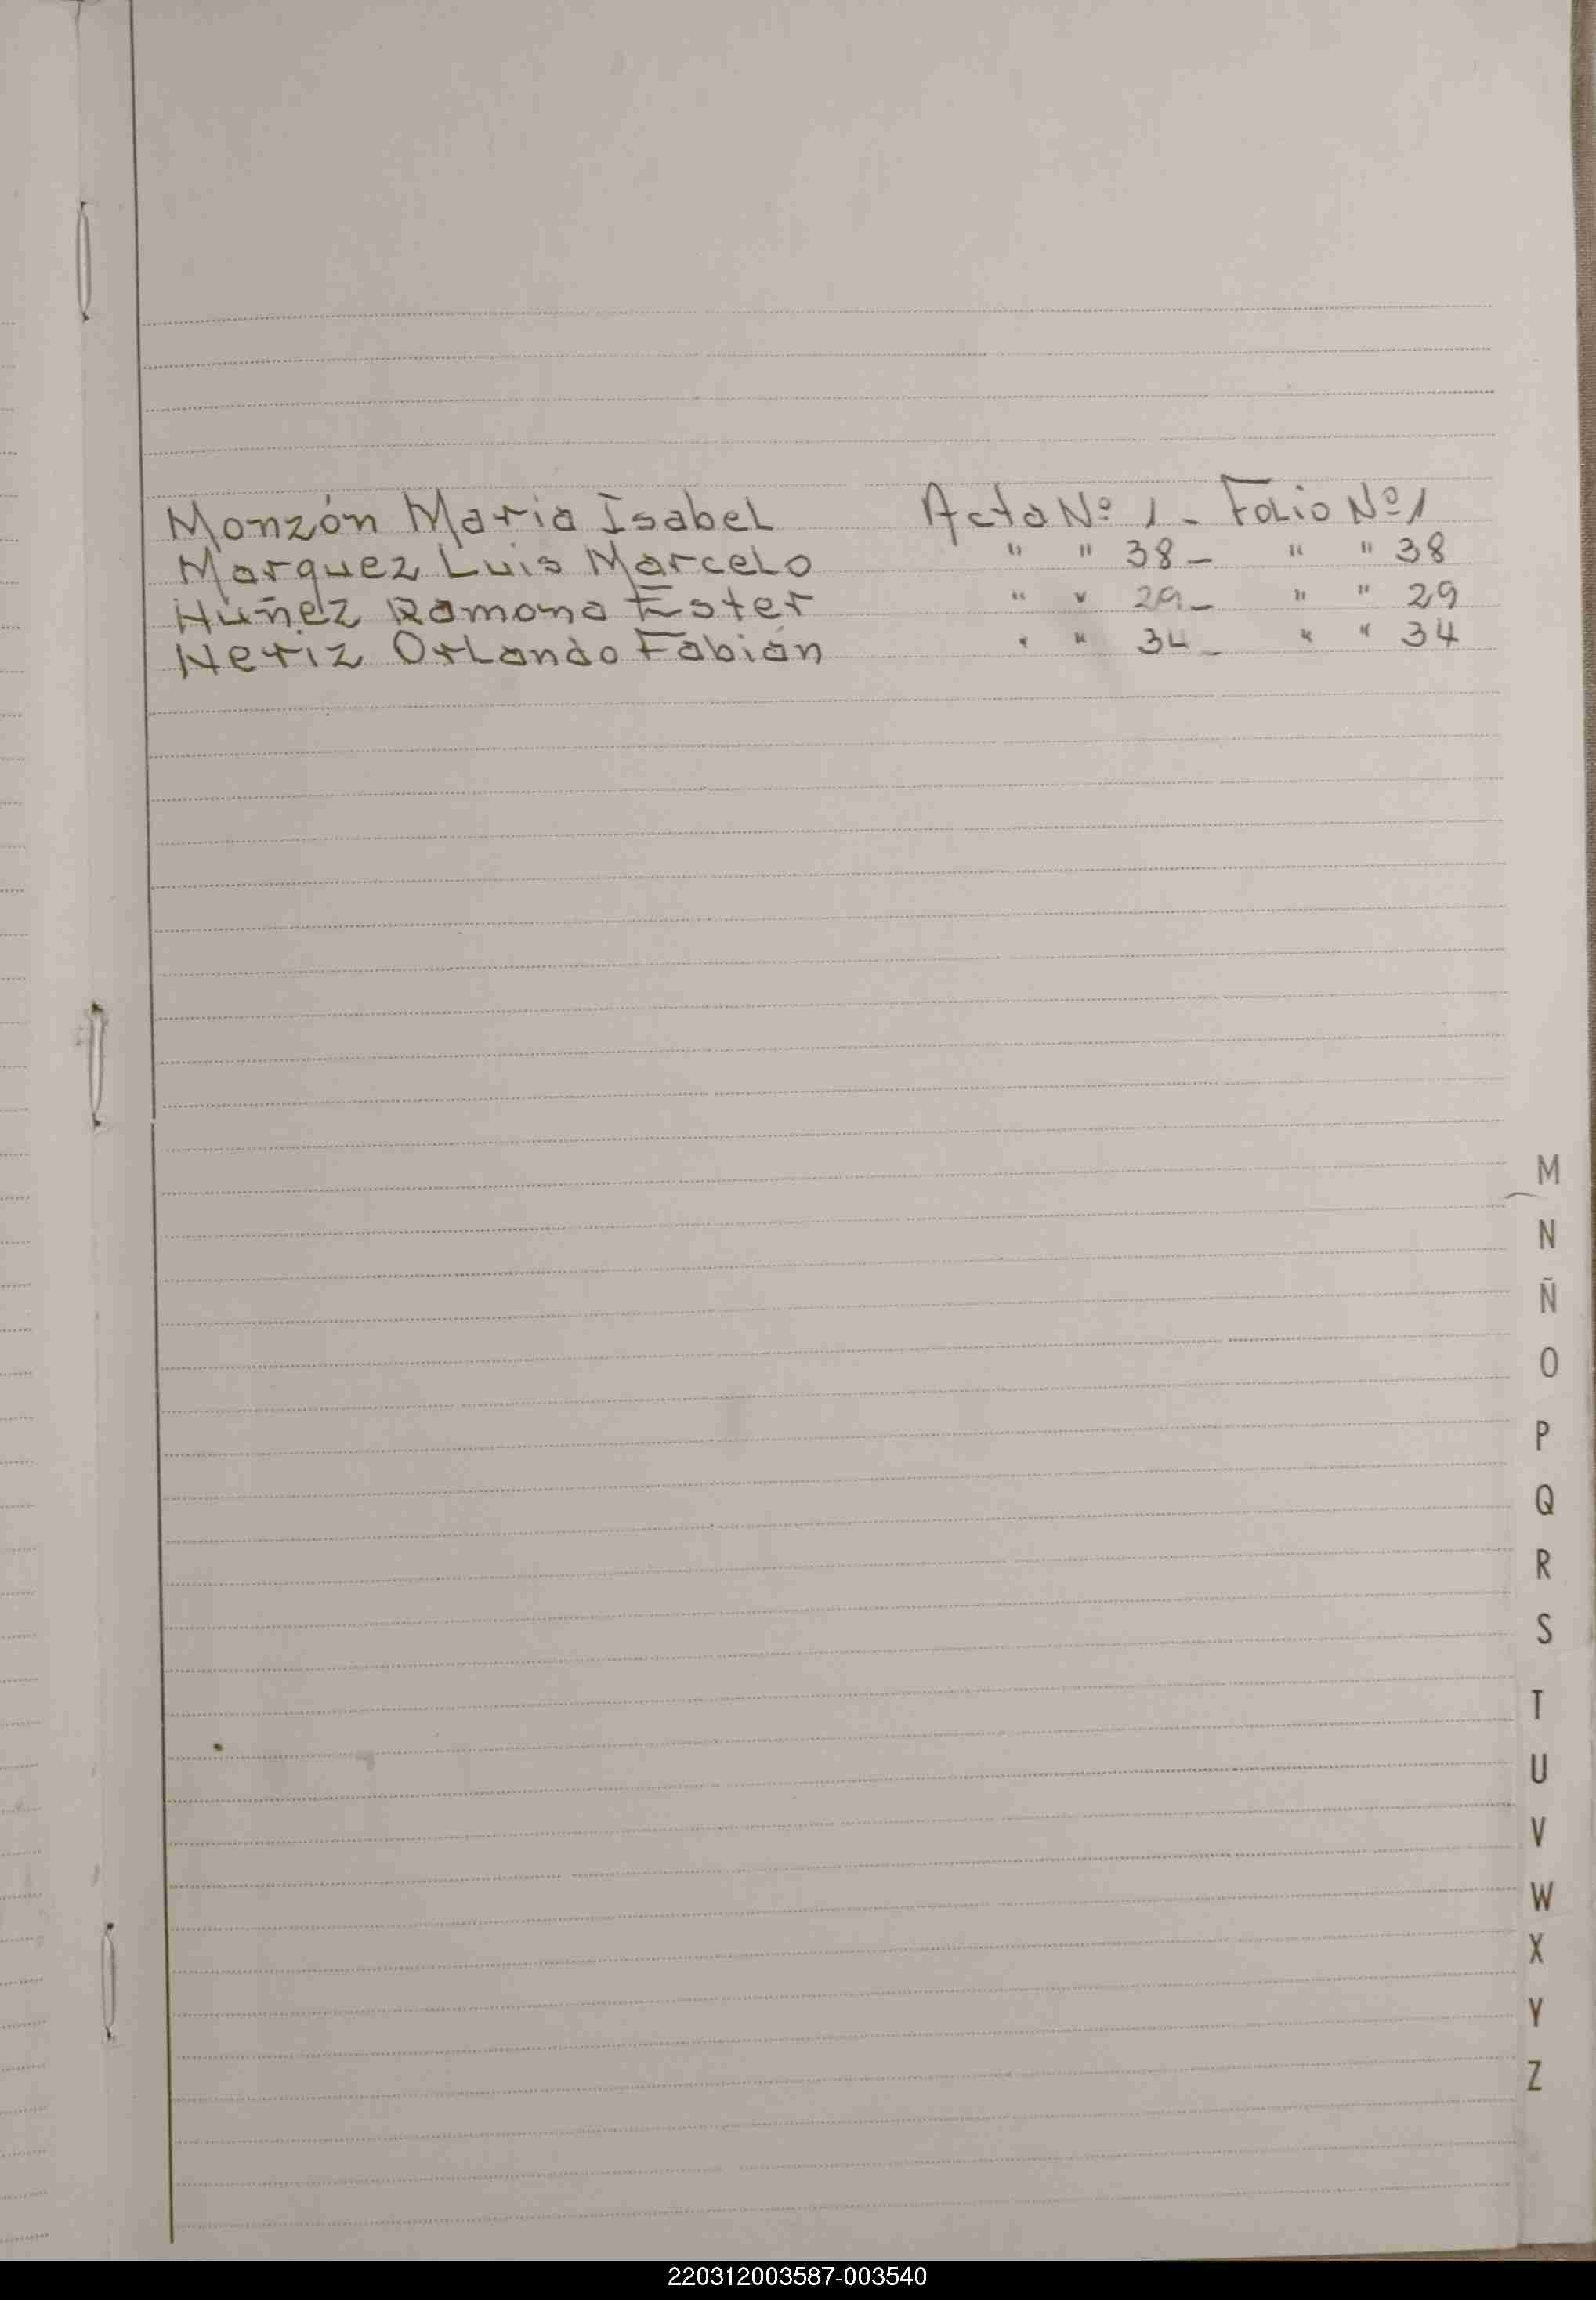 Monzón Maria Isabel Acta Nº 1 - Folio Nº 1
Marquez Luis Marcelo " " 38 - " " 38
Núñez Ramona Ester " " 29 - " " 29
Neriz Orlando Fabián " " 34 - " " 34
M
N
Ñ
O
P
Q
R
S
T
U
V
W
X
Y
Z
220312003587-003540